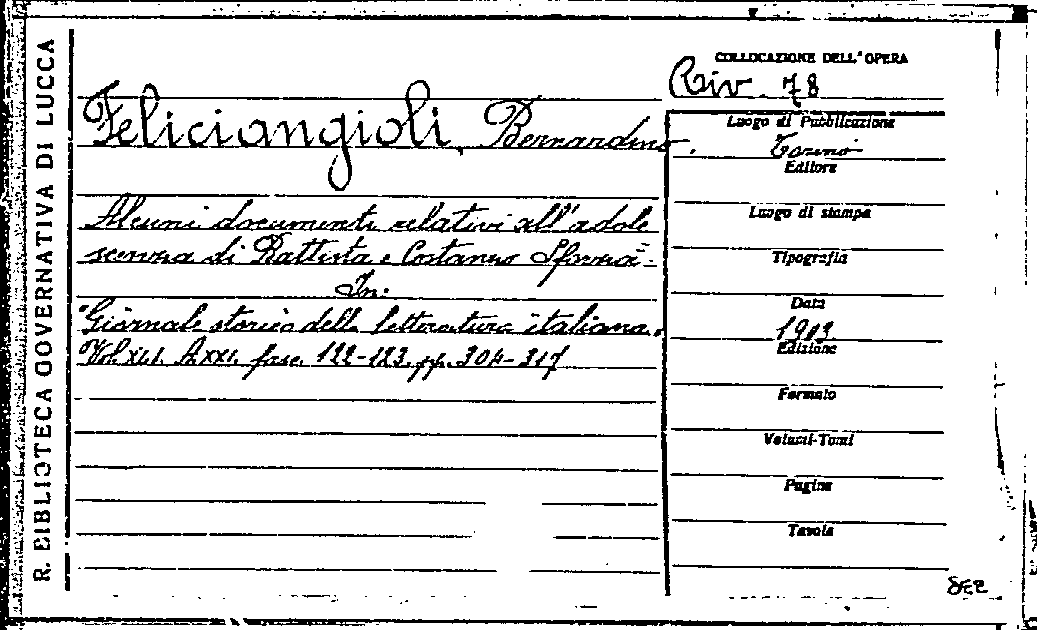 R. BIBLIOTECA GOVERNATIVA DI LUCCA
COLLOCAZIONE DELL'OPERA
Riv. 78
Feliciangioli, Bernardino.
Alcuni documenti relativi all'adole
scenza di Battista e Costanzo Sforza.
In:
"Giornale storico della letteratura italiana."
Vol. XLI. A. XXI. fasc. 122-123. pp. 304-317
Luogo di Pubblicazione
Torino
Editore
Luogo di stampa
Tipografia
Data
1903
Edizione
Formato
Volumi-Tomi
Pagine
Tavole